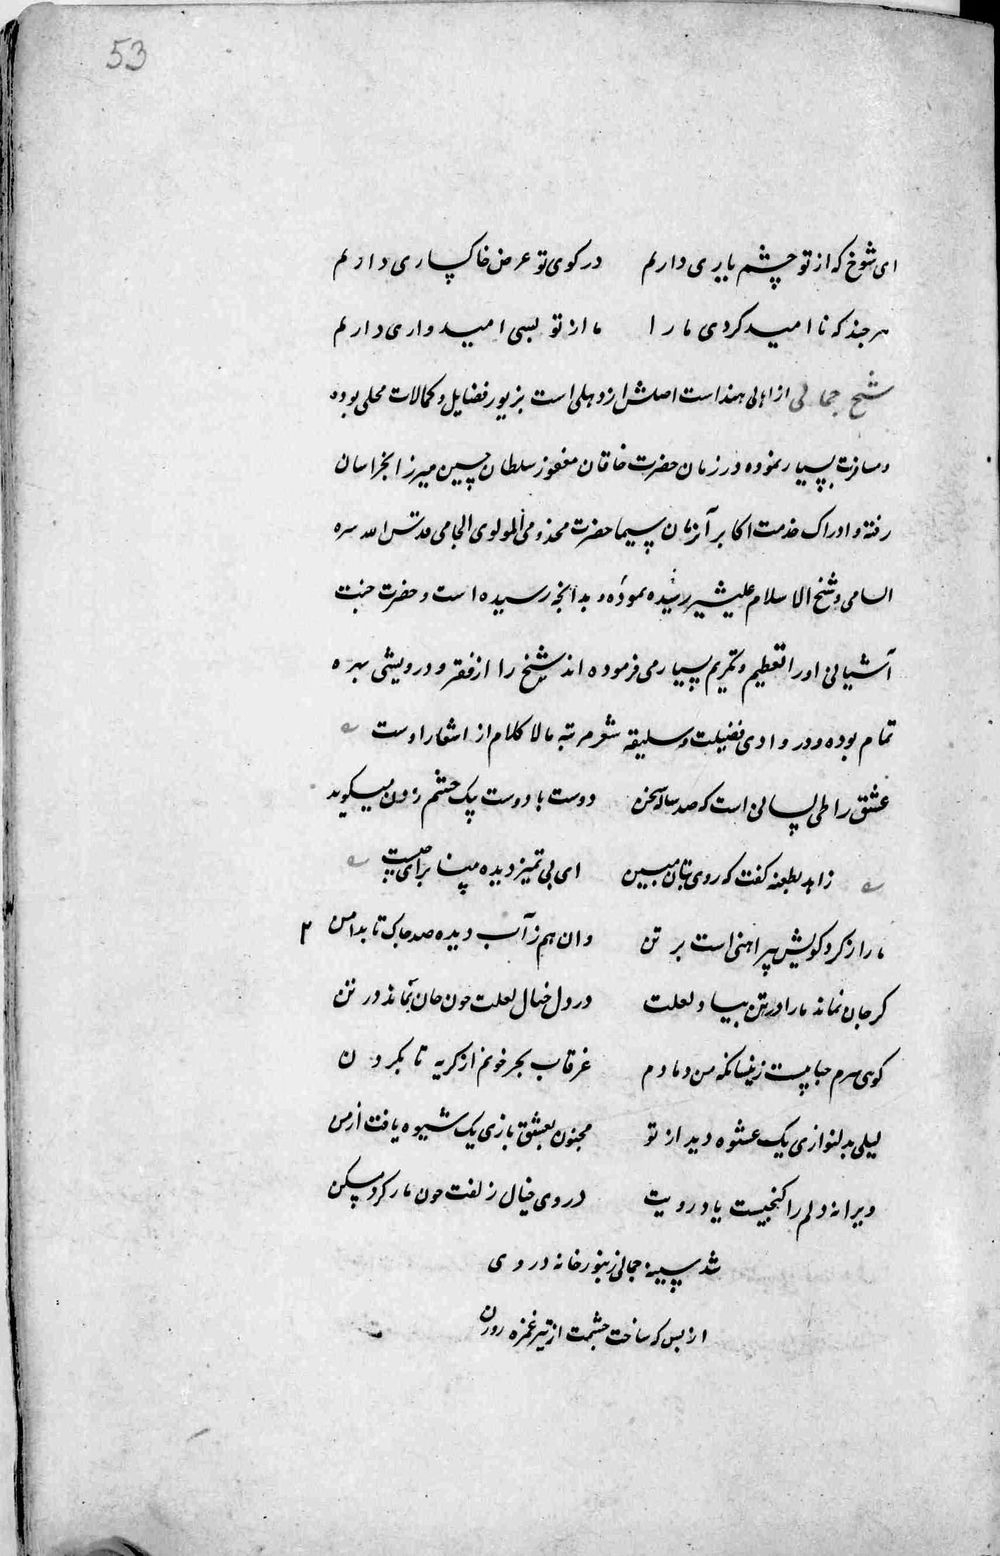 53
ای شوخ که از تو چشم یاری دارم در کوی تو عرض خاکساری دارم
هرچند که نا امید کردی ما را ما از تو بسی امیدواری دارم
شیخ جمالی از اهالی هند است اصلش از دهلی است بزیور فضایل و کمالات محلی بوده
و مسافرت بسیار نموده در زمان حضرت خاقان مغفور سلطان حسین میرزا بخراسان
رفته و ادراک خدمت اکابر آنزمان سیما حضرت مخدومی المولوی الجامی قدس الله سره
السامی و شیخ الاسلام علیشیر رسیده نموده و بدانجه رسیده است و حضرت جنت
آشیانی اورا تعظیم و تکریم بسیار می فرموده اند شیخ را از فقر و درویشی بهره
تمام بوده و در وادی فضیلت و سلیقه شعر مرتبه مالا کلام از اشعار اوست
عشق را طی لسانی است که صد ساله سخن دوست با دوست یک چشم زدن میگوید
زاهد بطعنه گفت که روی بتان مبین ای بی تمیز دیده بینا برای چیست
ما را ز گرد کویش پیراهنی است بر تن وان هم ز آب دیده صد چاک تا بدامن
گر جان نماند ما را در تن بیاد لعلت در دل خیال لعلت چون جان بماند در تن
گوی سرم حبابیست زینسانکه من دمادم غرقاب بحر خونم از گریه تا بگردن
لیلی بدلنوازی یک عشوه دید از تو مجنون بعشق بازی یک شیوه یافت از من
ویرانه دلم را گنجیست یاد رویت در وی خیال زلفت چون مار کرد مسکن
شد سینه جمالی زنبور خانه در وی
از بس که ساخت چشمت از تیر غمزه روزن